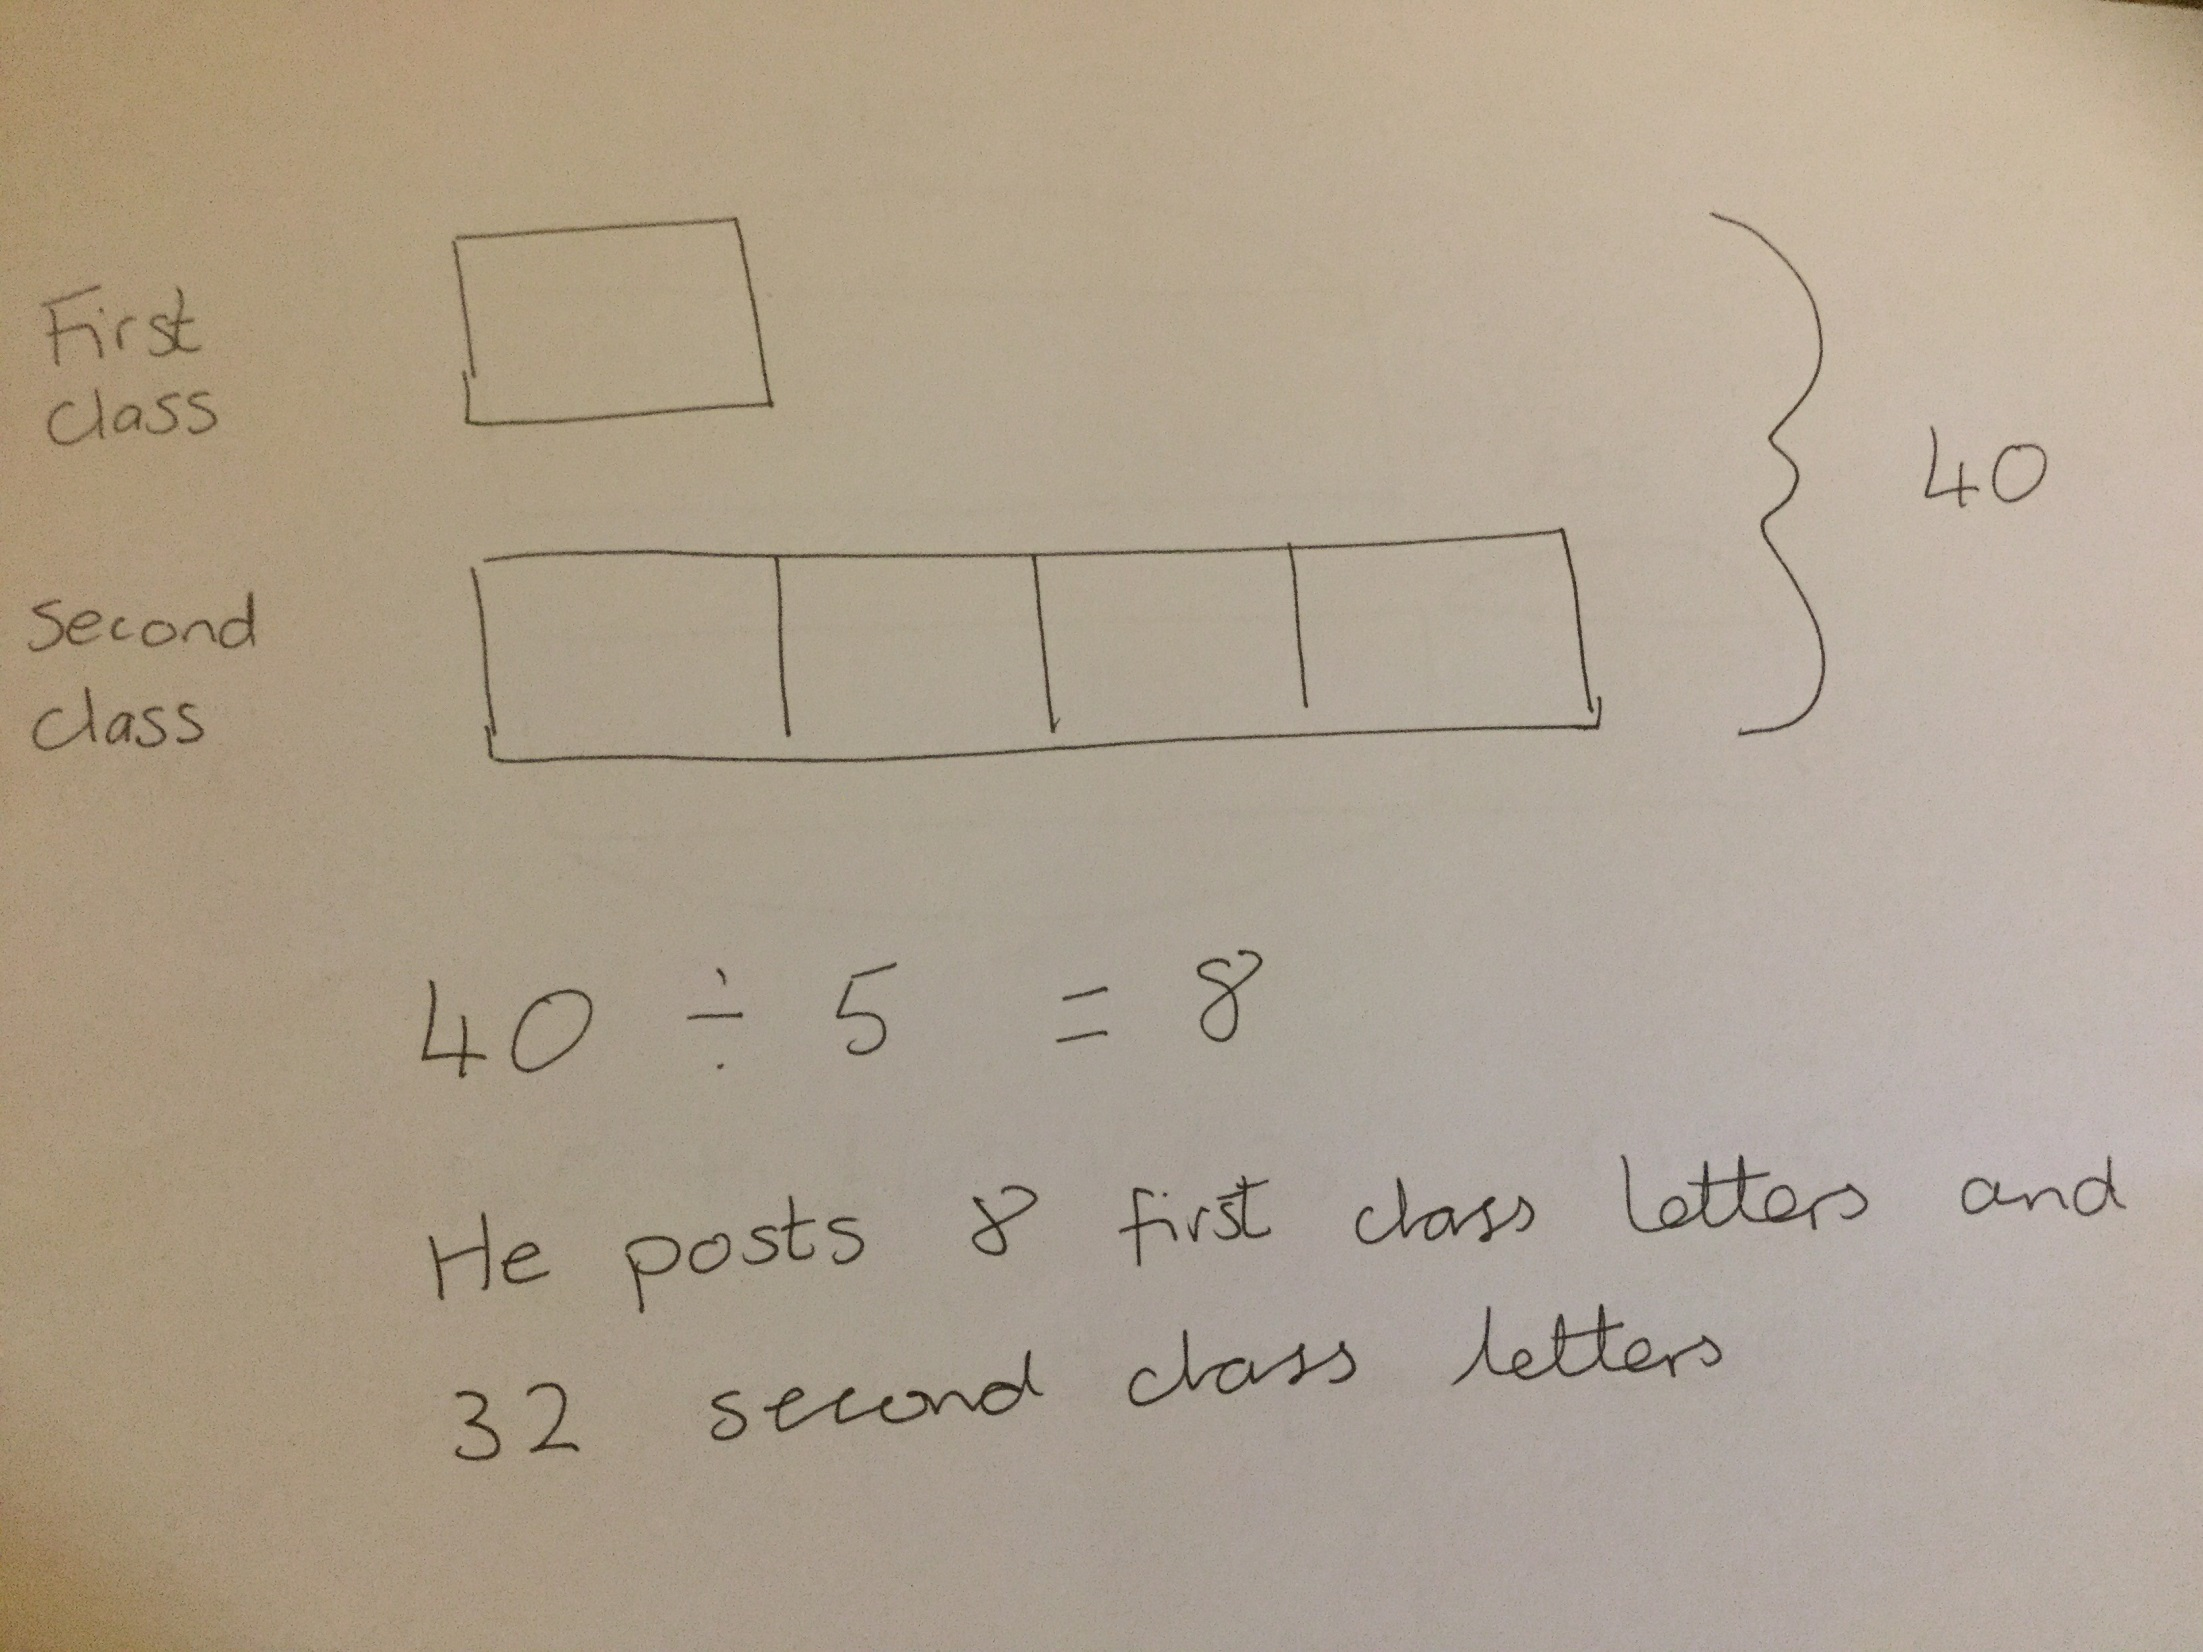 First
class
40
Second
class
40 ÷ 5 = 8
He posts 8 first class letters and
32 second class letters